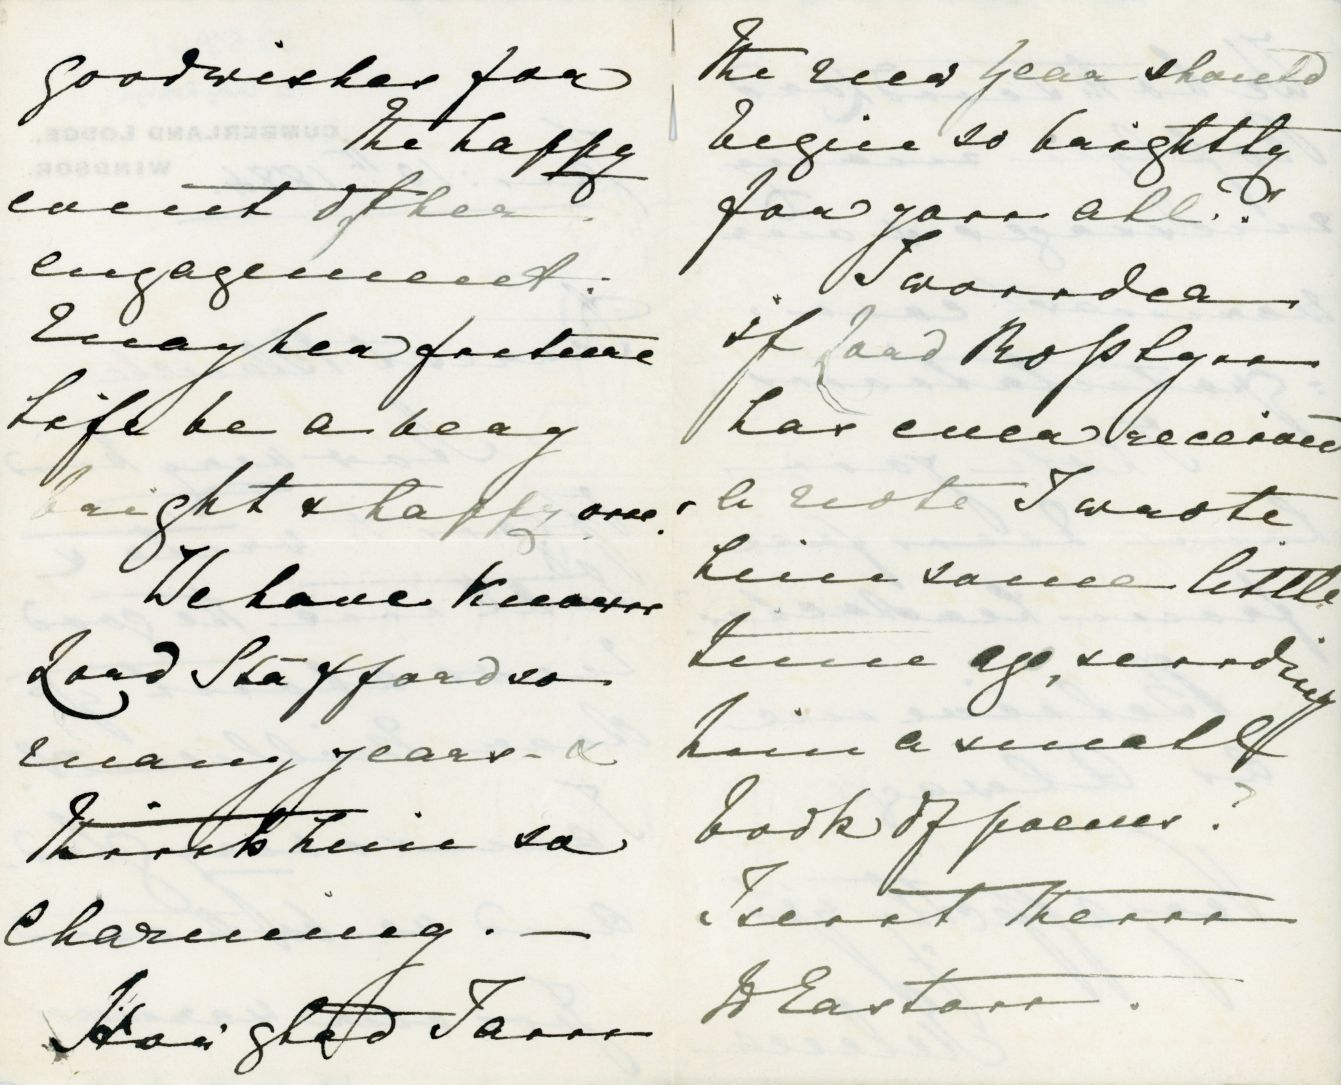 goodwishes for
the happy
event of her
engagement.
may her future
life be a very
bright & happy one!
We have known
Lord Stafford so
many years - &
think him so
charming. —
How glad I am
the new year should
begin so brightly
for you all!
I wonder
if Lord Rosslyn
has ever received
a note I wrote
him some little
time ago, sending
him a small
book of poems?
I sent them
to Easton.